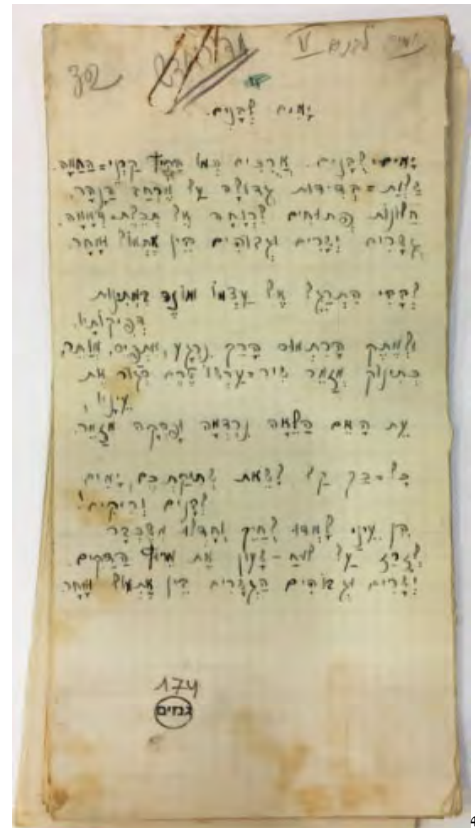 ימים לבנים V
יָמִים לְבָנִים.
יָמִים לְבָנִים. אֲרֻכִּים כְּמוֹ בַּקַּיִץ קַרְנֵי=הַחַמָּה.
שַׁלְוַת=בְּדִידוּת גְּדוֹלָה עַל מֶרְחַב הַנָּהָר.
חַלּוֹנוֹת פְּתוּחִים לִרְוָחָה אֶל תְּכֵלֶת=דְּמָמָה.
גְּשָׁרִים יְשָׁרִים וּגְבוֹהִים בֵּין אֶתְמוֹל וּמָחָר.
לְבָבִי הִתְרַגֵּל אֶל עַצְמוֹ וּמוֹנֶה בִּמְתִינוּת
דְּפִיקוֹתָיו,
וּלְמֶתֶק הָרִתְמוּס הָרַךְ נִרְגָּע, מִתְפַּיֵּס, מְוַתֵּר,
כְּתִינוֹק מְזַמֵּר שִׁיר=עַרְשׂוֹ טֶרֶם סְגוֹר אֶת
עֵינָיו,
עֵת הָאֵם הַלֵּאָה נִרְדְּמָה וּפָסְקָה מִזַּמֵּר.
כָּל=כַּךְ קַל לָשֵׂאת שְׁתִיקַתְכֶם, יָמִים
לְבָנִים וְרֵיקִים!
הֵן עֵינַי לָמְדוּ לְחַיֵּךְ וְחָדְלוּ מִשֶּׁכְּבָר
לְזָרֵז עַל לוּחַ-שָׁעוֹן אֶת מֵרוֹץ הַדַּקִּים.
יְשָׁרִים וּגְבוֹהִים הַגְּשָׁרִים בֵּין אֶתְמוֹל וּמָחָר.
174
גנזים
4